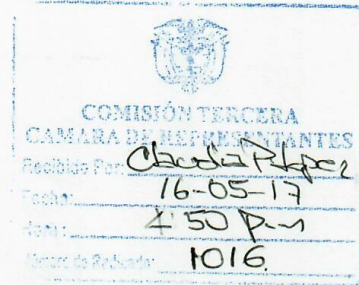 COMISIÓN TERCERA
CAMARA DE REPRESENTANTES
Recibido Por: Claudia P.
Fecha: 16-05-17
Hora: 4:50 p.m
Número de Radicado: 1016